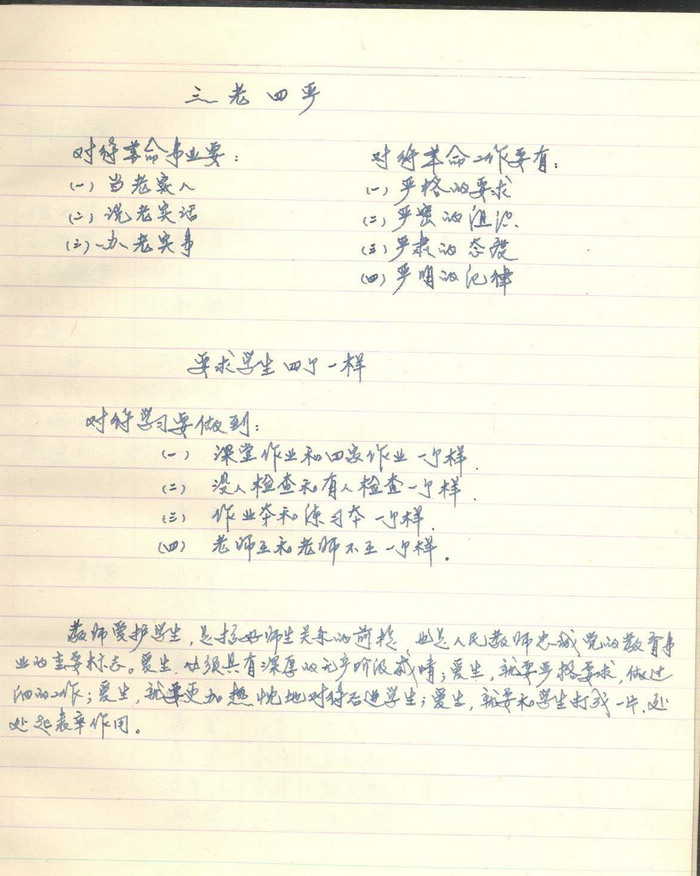 三老四严
对待革命事业要:
(一) 当老实人
(二) 说老实话
(三) 办老实事
对待革命工作要有:
(一) 严格的要求
(二) 严密的组织
(三) 严肃的态度
(四) 严明的纪律
要求学生四个一样
对待学习要做到:
(一) 课堂作业和回家作业一个样.
(二) 没人检查和有人检查一个样.
(三) 作业本和练习本一个样.
(四) 老师在和老师不在一个样.
教师爱护学生,是搞好师生关系的前提,也是人民教师忠诚党的教育事
业的主要标志。爱生,必须具有深厚的无产阶级感情;爱生,就要严格要求,做过
细的工作;爱生,就要更加热忱地对待后进学生;爱生,就要和学生打成一片,处
处起表率作用。